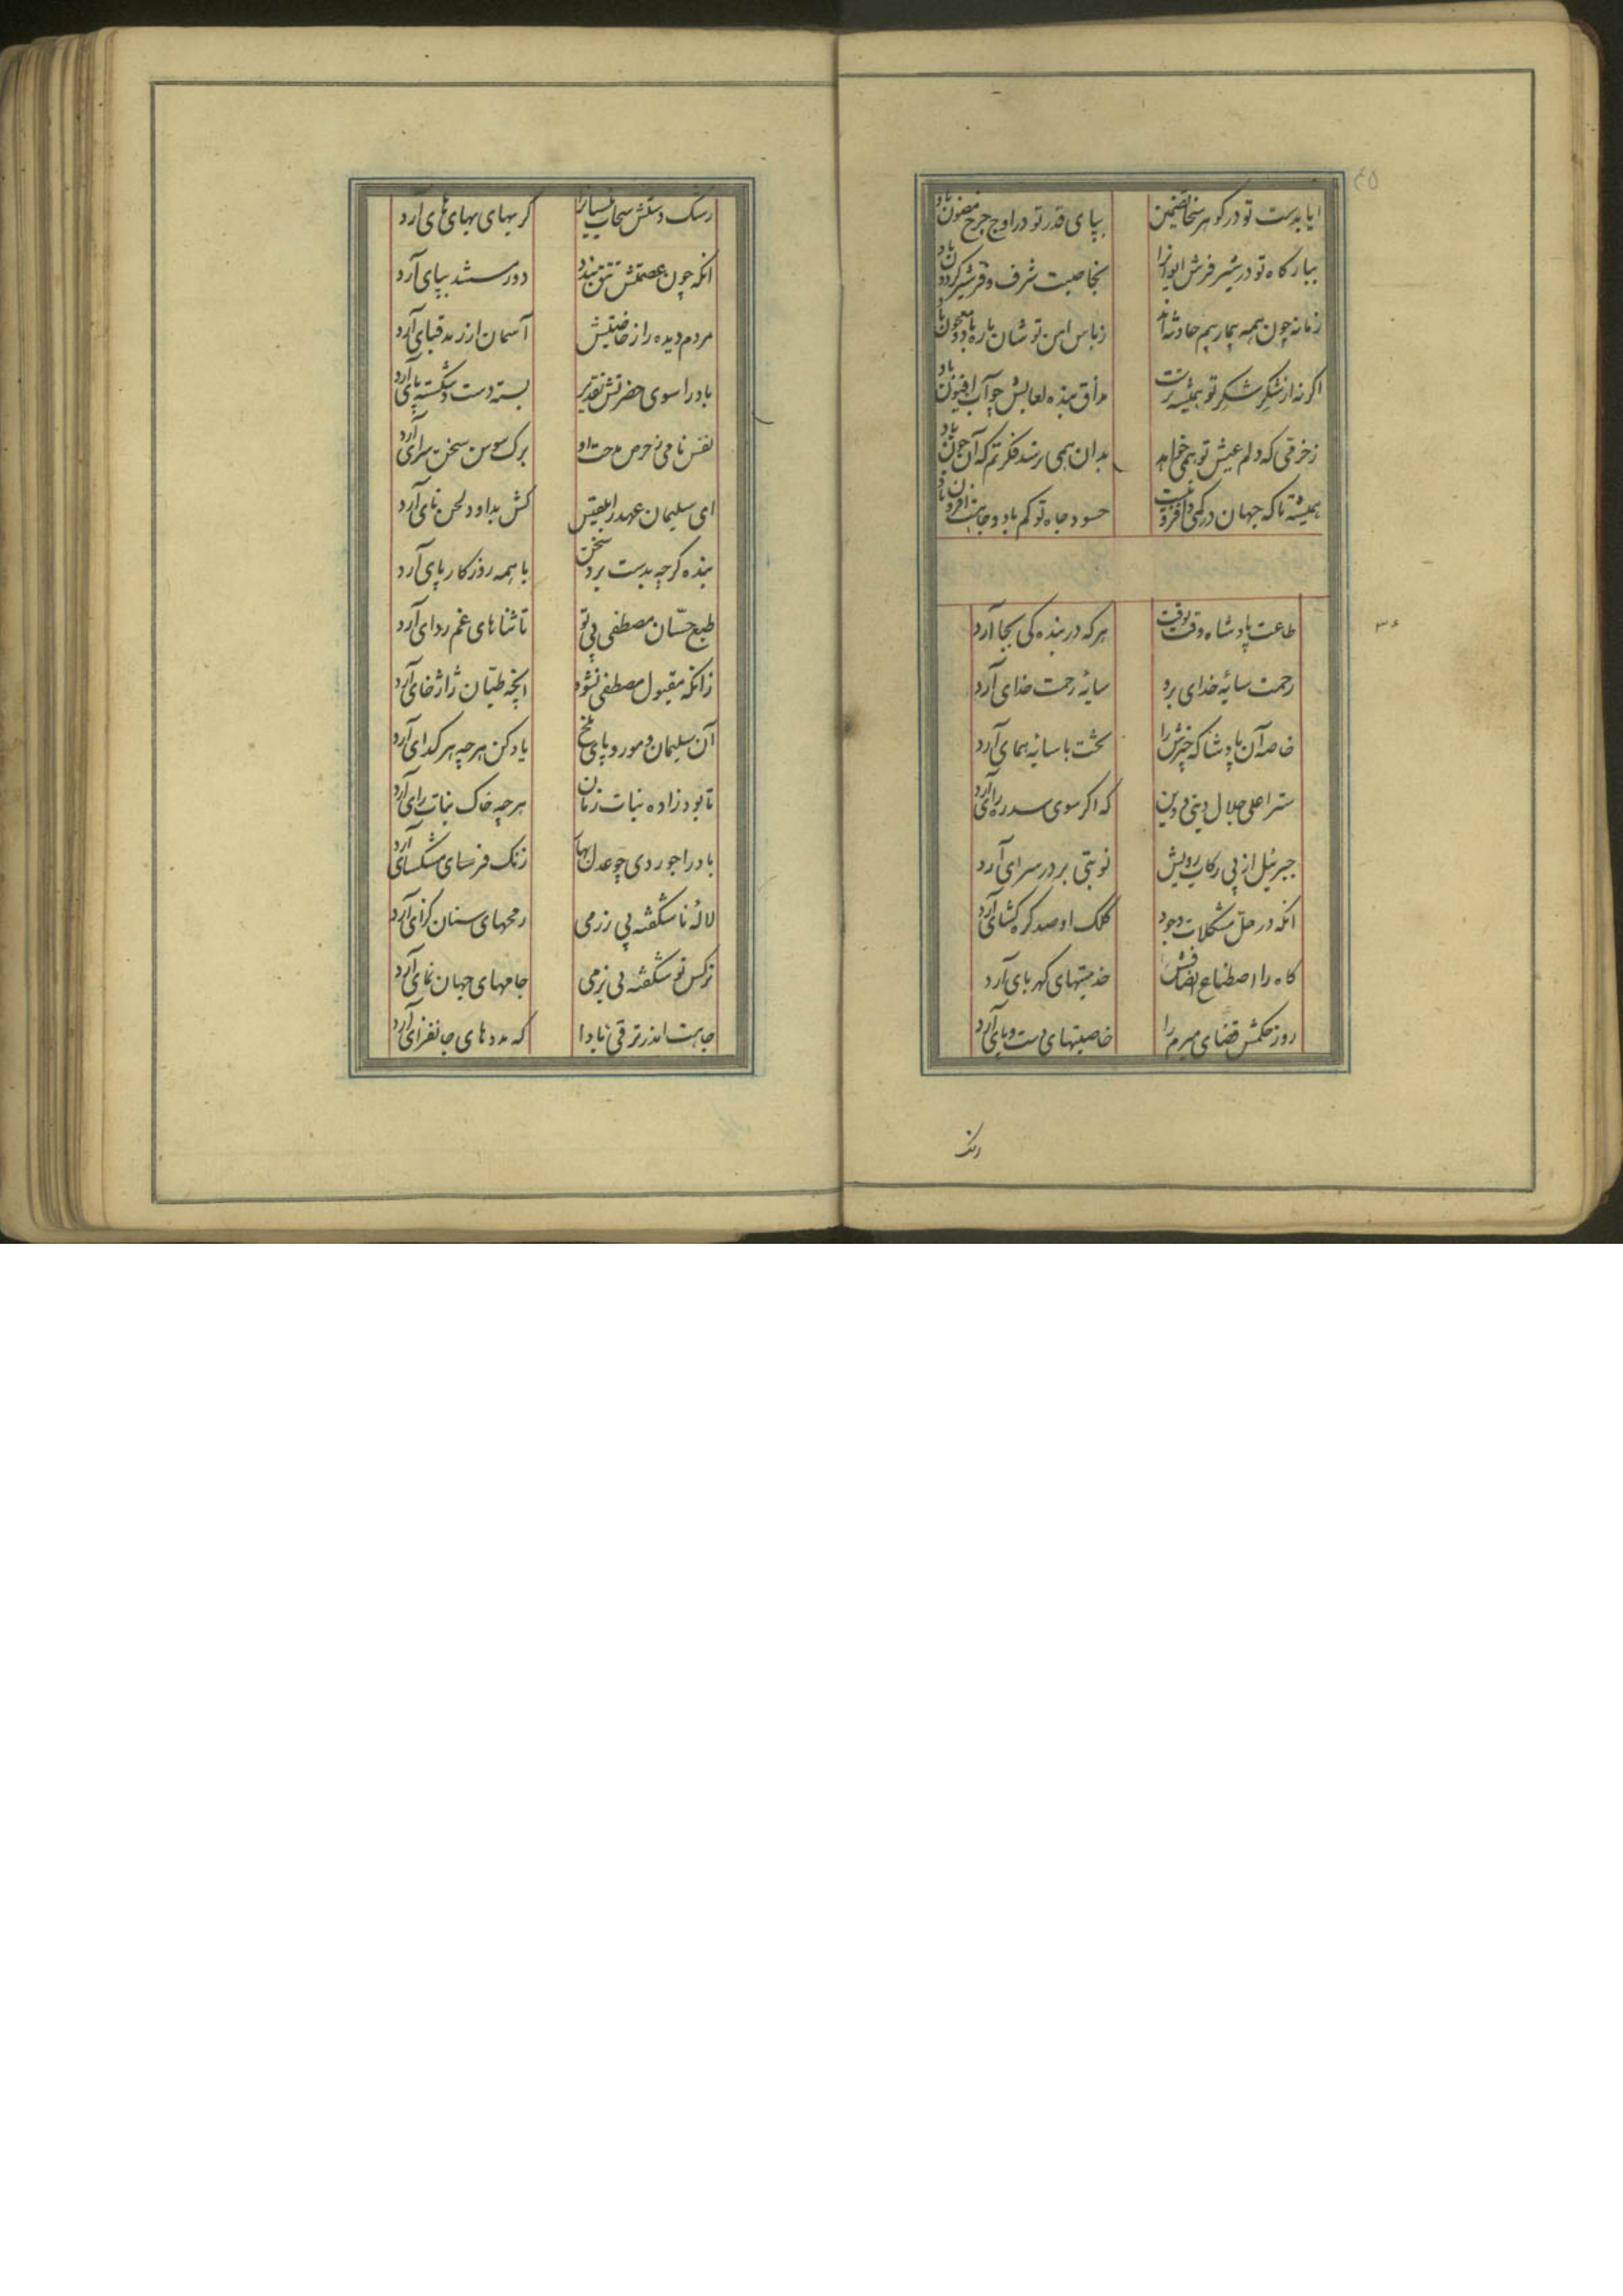 ایا بدست تو در کوهر سخا تضمین بپای قدر تو در اوج چرخ مضمون باد
ببارکاه تو در شیر فرش ایوانرا بخاصیت شرف و فر شیر کردون باد
زمانه چون همه بیمار بیم حادثه اند زباس امن تو شان باره باد و معجون باد
اکر نه از شکر شکر تو همیشه ترست مذاق بنده لعابش چو آب افیون باد
زخرقی که دلم عیش تو همی خواهد بدان همی نرسد فکرتم که آن چون باد
همیشه تا که جهان در کمی و افزونیست حسود جاه تو کم باد و جاهت افزون باد
طاعت پادشاه وقت بوقت هر که در بندگی بجا آرد
رحمت سایهٔ خدای برو سایهٔ رحمت خدای آرد
خاصه آن پادشا که چترش را بخت با سایه همای آرد
ستر اعلی جلال دینی و دین که اکر سوی سدره رای آرد
جبرئیل از پی رکاب رویش نوبتی بر در سرای آرد
انکه در حل مشکلات وجود کلک او صد کره کشای آرد
کاه را اصطناع انصافش خدمتهای کهربای آرد
روز حکمش قضای مبرم را خاصیتهای دست و پای آرد
رشک
رشک دستش سحاب نیسانرا کریهای بهای های آرد
انکه چون عصمتش تتق بندد دور سشد بپای آرد
مردم دیده را ز خاصیتش آسمان ازرمد قبای آرد
باد را سوی حضرتش تقدیر بسته دست و شکسته پای آرد
نفس نامی ز حرص مدحت او برک سوسن سخن سرای آرد
ای سلیمان عهد را بلقیس کش بداود لحن نای آرد
بنده کرچه بدست برد سخن با همه روزکار پای آرد
طبع حسّان مصطفی یی تو تا ثناهای غم زدای آرد
زانکه مقبول مصطفی نشود انچه طیّان ژاژ خای آرد
آن سلیمان و مور و پای ملخ یاد کن هر چه هر کدای آرد
تا بود زاده نبات زمان هر چه خاک نبات زای آرد
باد را جور دی چو عدل بهار زنک فرسای مشکسای آرد
لالهٔ ناشکفته پی رزمی رمحهای سنان کرای آرد
نرکس نو شکفته پی بزمی جامهای جهان نمای آرد
جاهت اندر ترقی بادا که مددهای جانفزای آرد